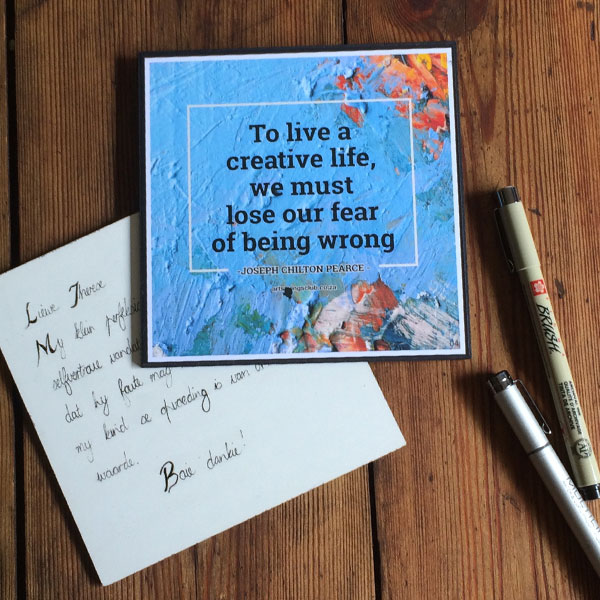 To live a
creative life,
we must
lose our fear
of being wrong
-JOSEPH CHILTON PEARCE-
04
Liewe Therese
My klein
selfvertroue
dat hy foute mag
my kind se opvoeding is van
waarde.
Baie dankie!
BRUSH